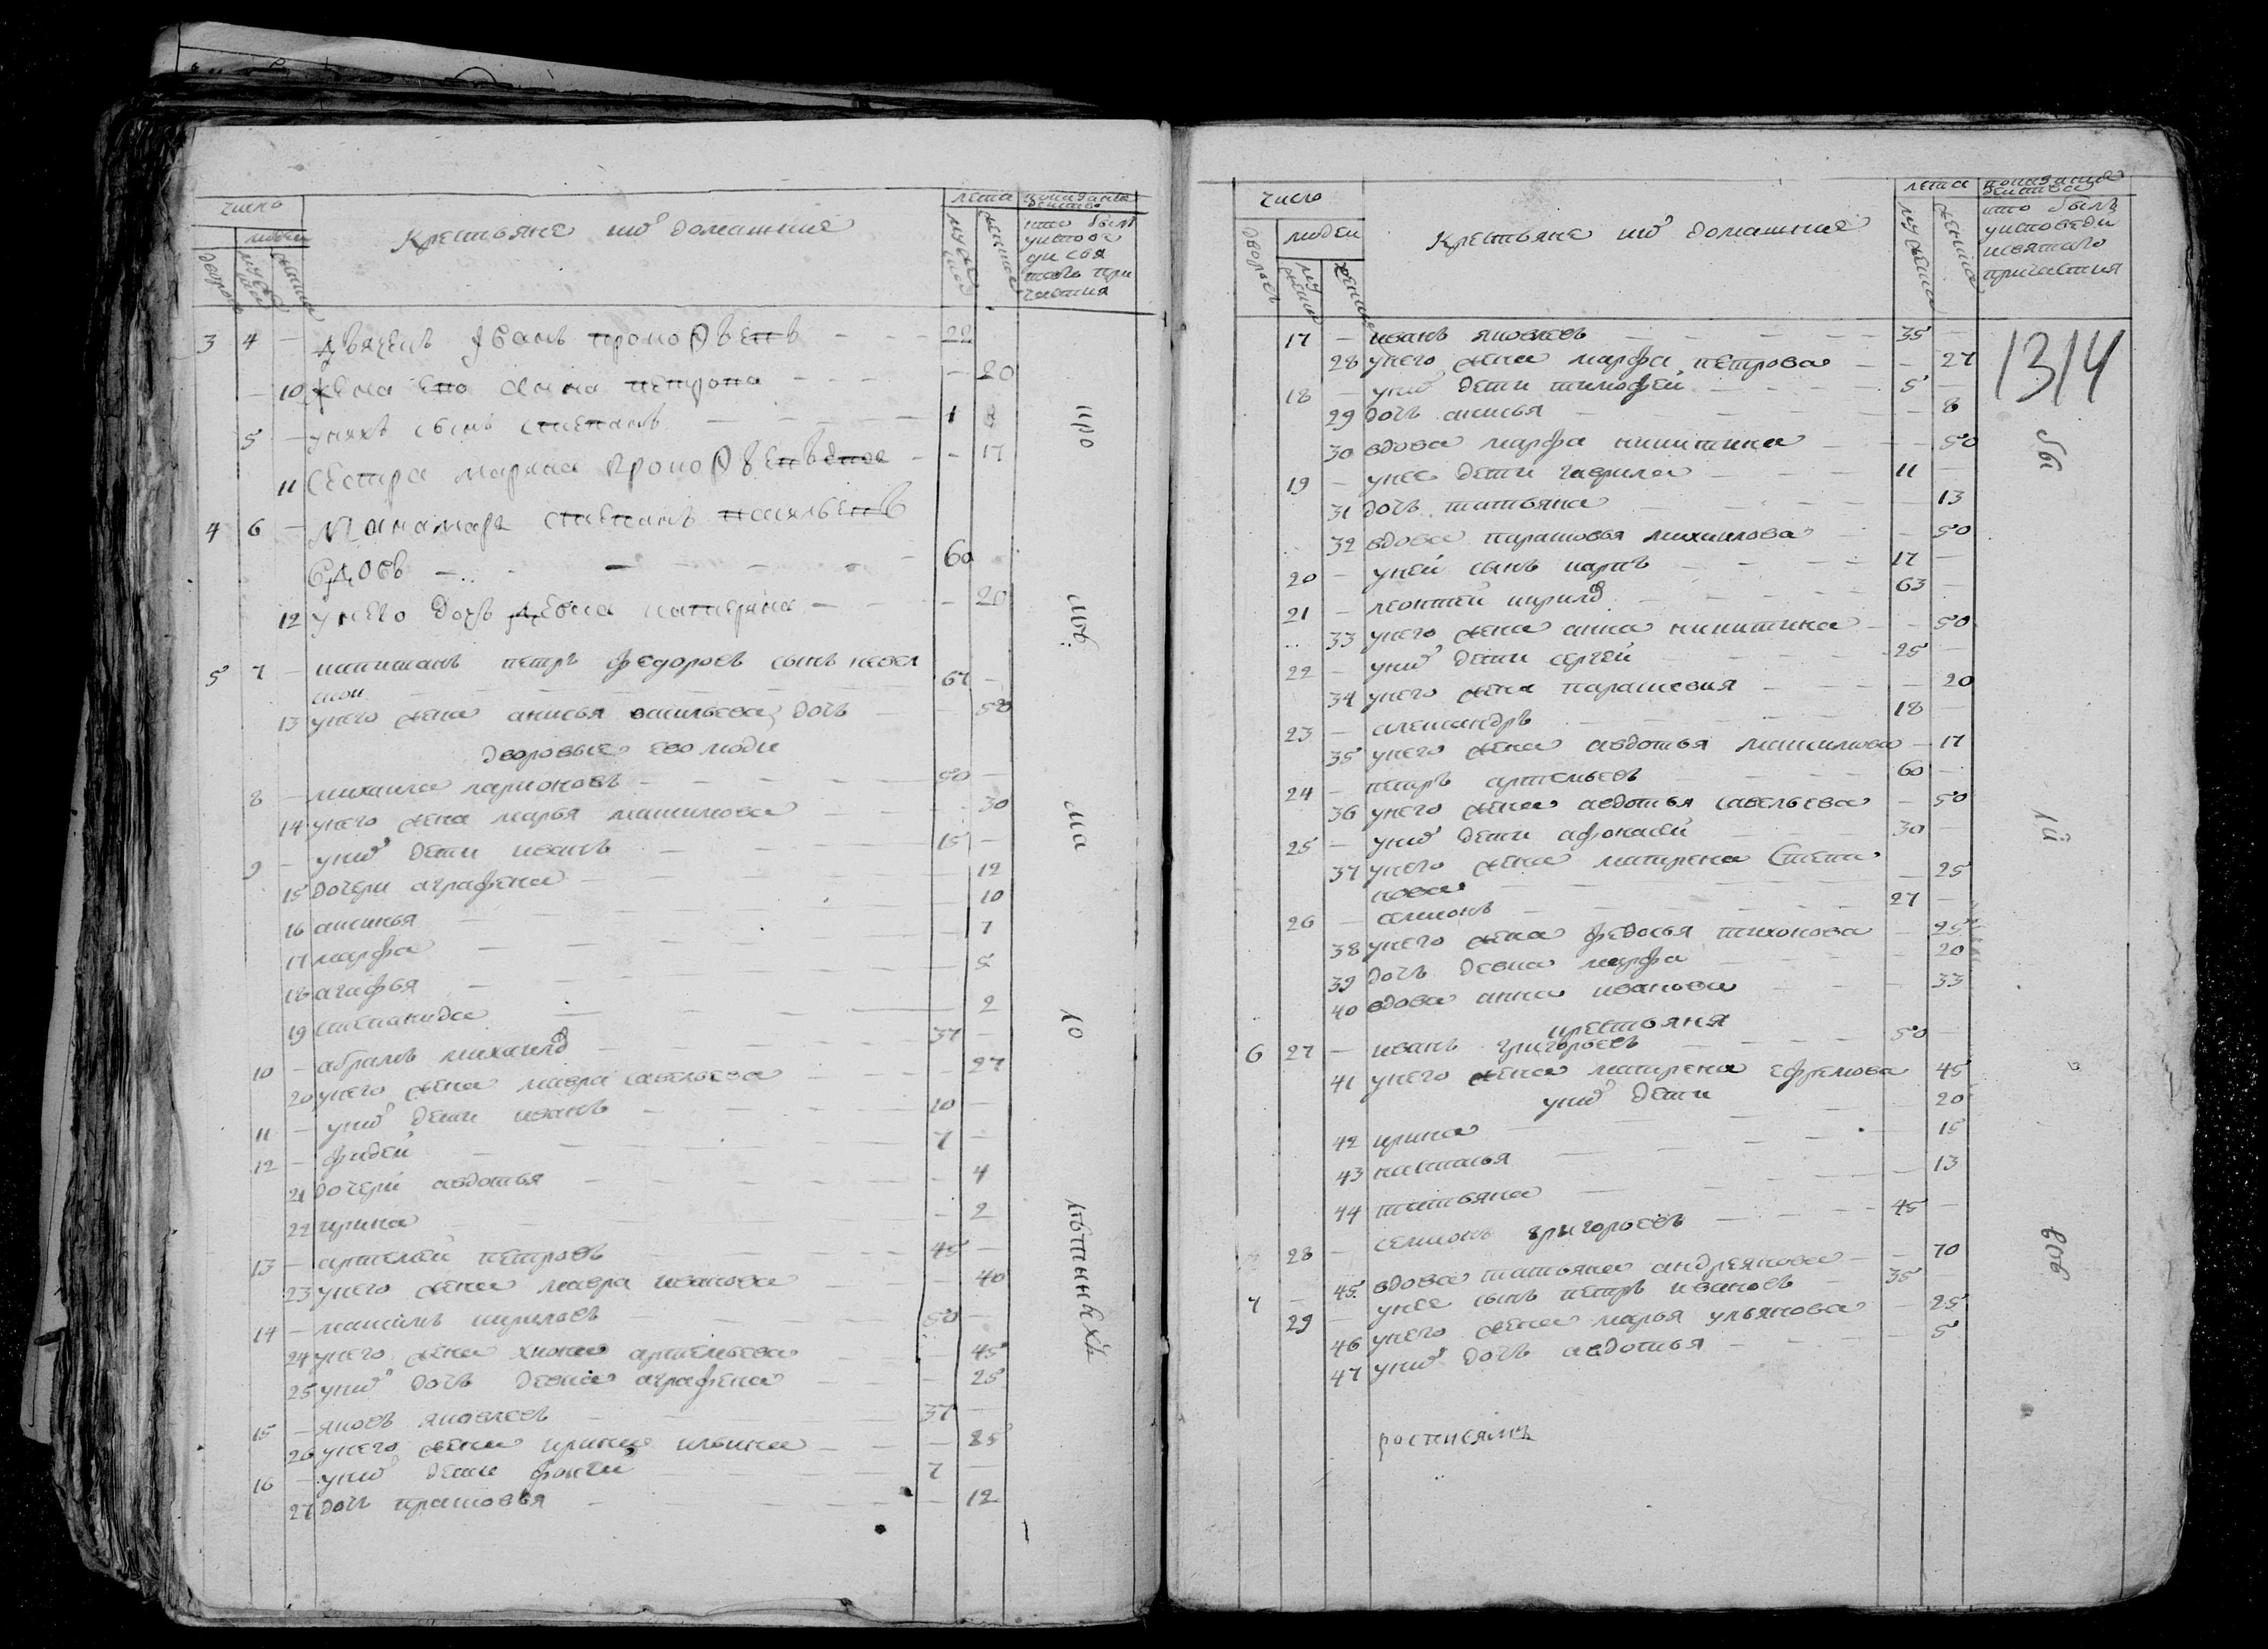 число
люден
дворовъ
мужеска
женска
Крестьяне ихъ домашние
лета
мужеска
женска
показание действа
кто былъ
уисповеди
и свя
таго при
частия
3 4 — дьячекъ Їванъ прокоѳьевъ — 22
— 10 жена ево Анна петрова — 20
5 — унихъ сынъ степанъ — 1
11 Сестра Марина Прокоѳьева — 17
4 6 — Панамарь степанъ
вдовъ — 60
12 унего дочь девка катерина — 20
5 7 — капитанъ петръ федоровъ сынъ невел
скои — 67 —
13 унего жена анисья васильева дочь — 58
дворовые ево люди
8 — михаила ларионовъ — 50 —
14 унего жена марья максимова — 30
9 — унихъ дети иванъ — 15 —
15 дочери аграфена — 12
16 аксинья — 10
17 марфа — 7
18 агафья — 5
19 степанида — 2
10 — абрамъ михаилов — 37 —
20 унего жена мавра савельева — 27
11 — унихъ дети иванъ — 10 —
12 — фадеи — 7 —
21 дочери авдотья — 4
22 ирина — 2
13 — артемеи петровъ — 45 —
23 унего жена мавра иванова — 40
14 — максимъ кириловъ — 50 —
24 унего жена артемьева — 45
25 унихъ дочь девка аграфена — 25
15 — яковъ яковлевъ — 37 —
26 унего жена ирина ильина — 35
16 — унихъ дети фокеи — 7 —
27 дочь прасковья — 12
про
ма
ю
число
дворовъ
людеи
мужеска
женска
Крестьяне ихъ домашние
лета
мужеска
женска
показание
действа
кто былъ
уисповеди
исвятаго
причастия
1314
17 — иванъ яковлевъ — 35 —
28 унего жена марфа петрова — 27
18 — унихъ дети тимофеи — 5 —
29 дочь анисья — 8
30 вдова марфа никитина — 50
19 — унее дети гаврила — 11 —
31 дочь татьяна — 13
32 вдова парасковья михаилова — 50
20 — унеи сынъ карпъ — 17 —
21 — леонтеи кирилов — 63 —
33 унего жена анна никитина — 50
22 — унихъ дети сергеи — 25 —
34 унего жена парасковия — 20
23 — александръ — 18 —
35 унего жена авдотья максимова — 17
24 — петръ артемьевъ — 60 —
36 унего жена авдотья савельева — 50
25 — унихъ дети афонасеи — 30 —
37 унего жена матрена Степа
нова — 25
26 — семионъ — 27 —
38 унего жена федосья тихонова — 25
39 дочь девка марфа — 20
40 вдова анна иванова — 33
крестьяня
6 27 — иванъ григорьевъ — 50 —
41 унего жена матрена ефремова 45
унихъ дети
42 ирина — 20
43 настасья — 15
44 татьяна — 13
28 — семионъ григорьевъ — 45 —
45 вдова татьяна андреянова — 70
7 29 — унее сынъ петръ ивановъ — 35
46 унего жена марья ульянова — 25
47 унихъ дочь авдотья — 5
росписямъ